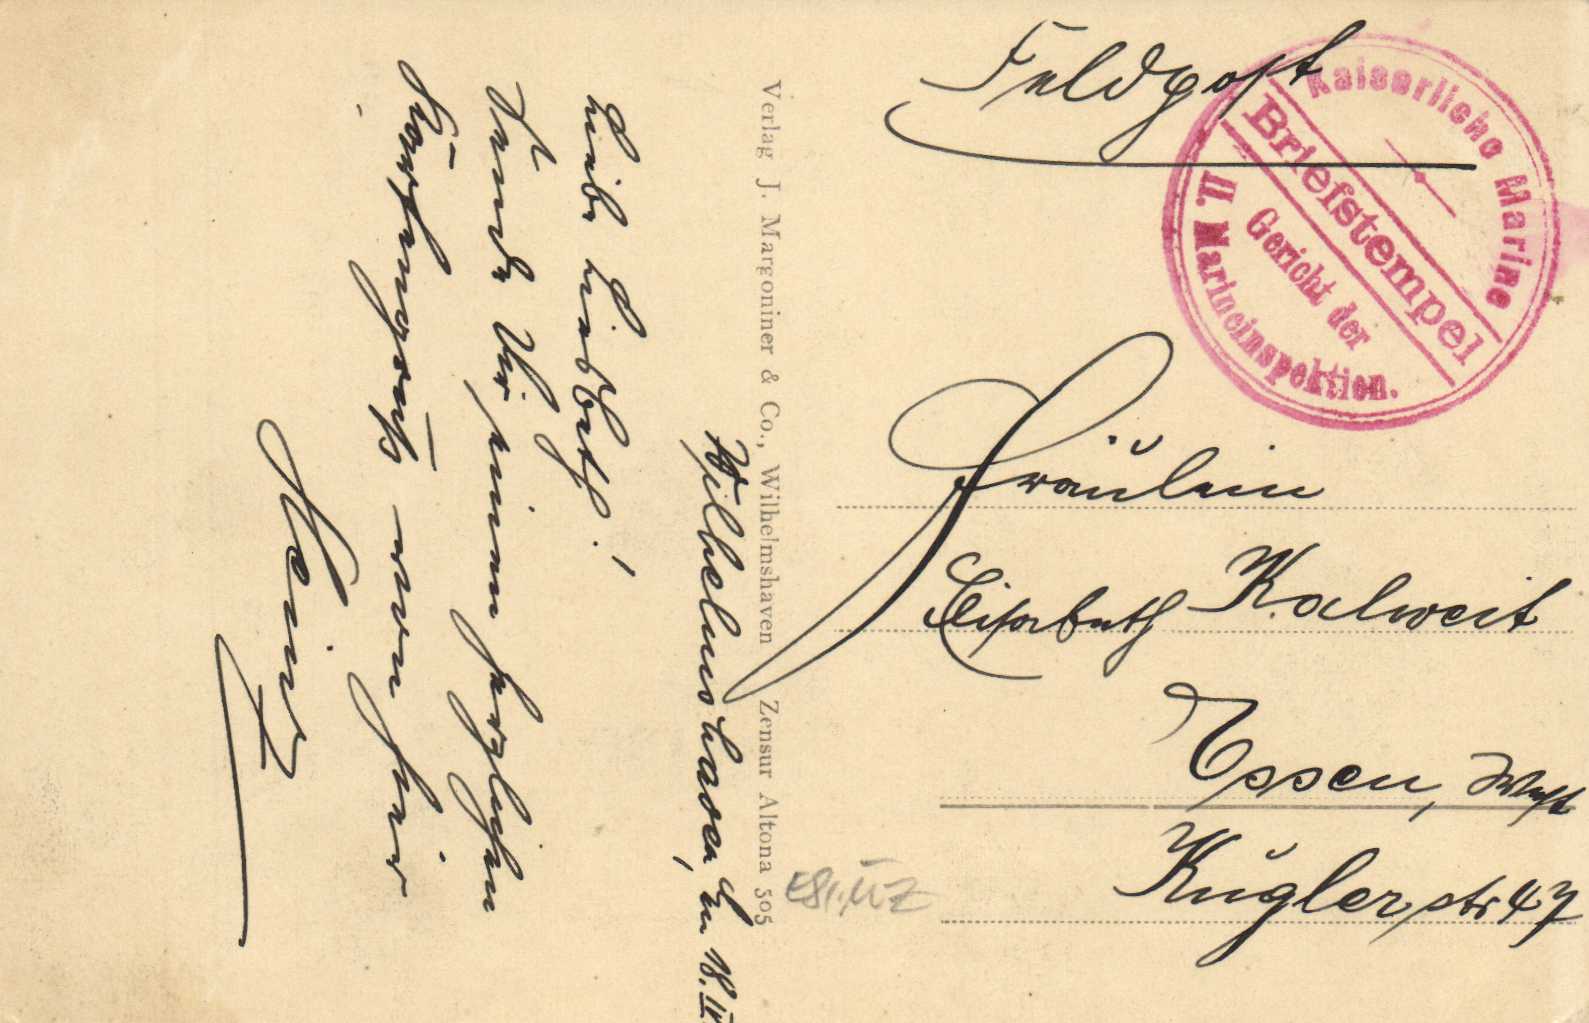 Feldpost
Kaiserliche Marine
Briefstempel
Gericht der
II. Marineinspektion.
Fräulein
Elisabeth Kalweit
Essen, West
Kuglerstr 47
Verlag J. Margoniner & Co., Wilhelmshaven Zensur Altona 505
Wilhelmshaven, den 18. IV
Liebe Liesbeth!
Sende Dir einen herzlichen
von hier
Heinz